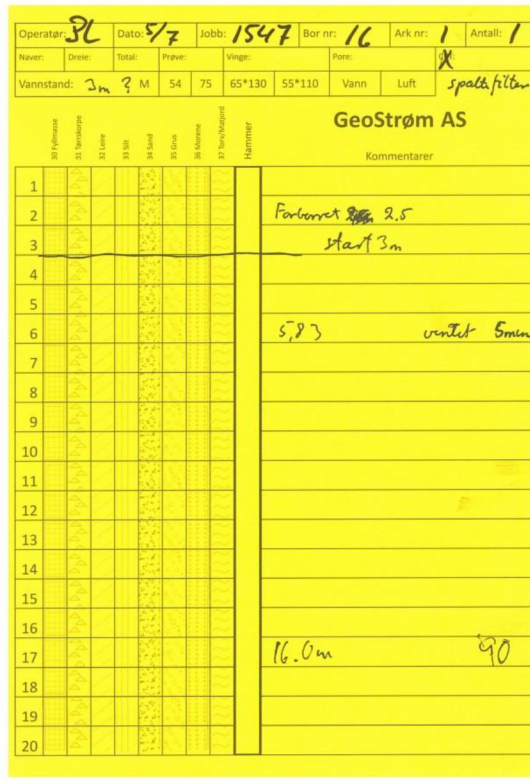 Operatør: BL Dato: 5/7 Jobb: 1547 Bor nr: 16 Ark nr: 1 Antall: 1
Naver: Dreie: Total: Prøve: Vinge: Pore: X
Vannstand: 3m ? M 54 75 65*130 55*110 Vann Luft spaltefilter
30 Fyllmasse 31 Tørrskorpe 32 Leire 33 Silt 34 Sand 35 Grus 36 Morene 37 Torv/Matjord Hammer
GeoStrøm AS
Kommentarer
1
2 Forborret 2.5
3 start 3m
4
5
6 5,83 ventet 5min
7
8
9
10
11
12
13
14
15
16
17 16.0m 90
18
19
20